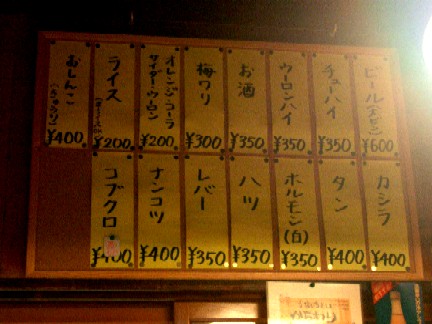 ビール(大ビン)
¥600
チューハイ
¥350
ウーロンハイ
¥350
お酒
¥350
梅ワリ
¥300
オレンジ・コーラ
サイダー・ウーロン
¥200
ライス
¥200
おしんこ
(きゅうり)
¥400
カシラ
¥400
タン
¥400
ホルモン(白)
¥350
ハツ
¥350
レバー
¥350
ナンコツ
¥400
コブクロ
¥400